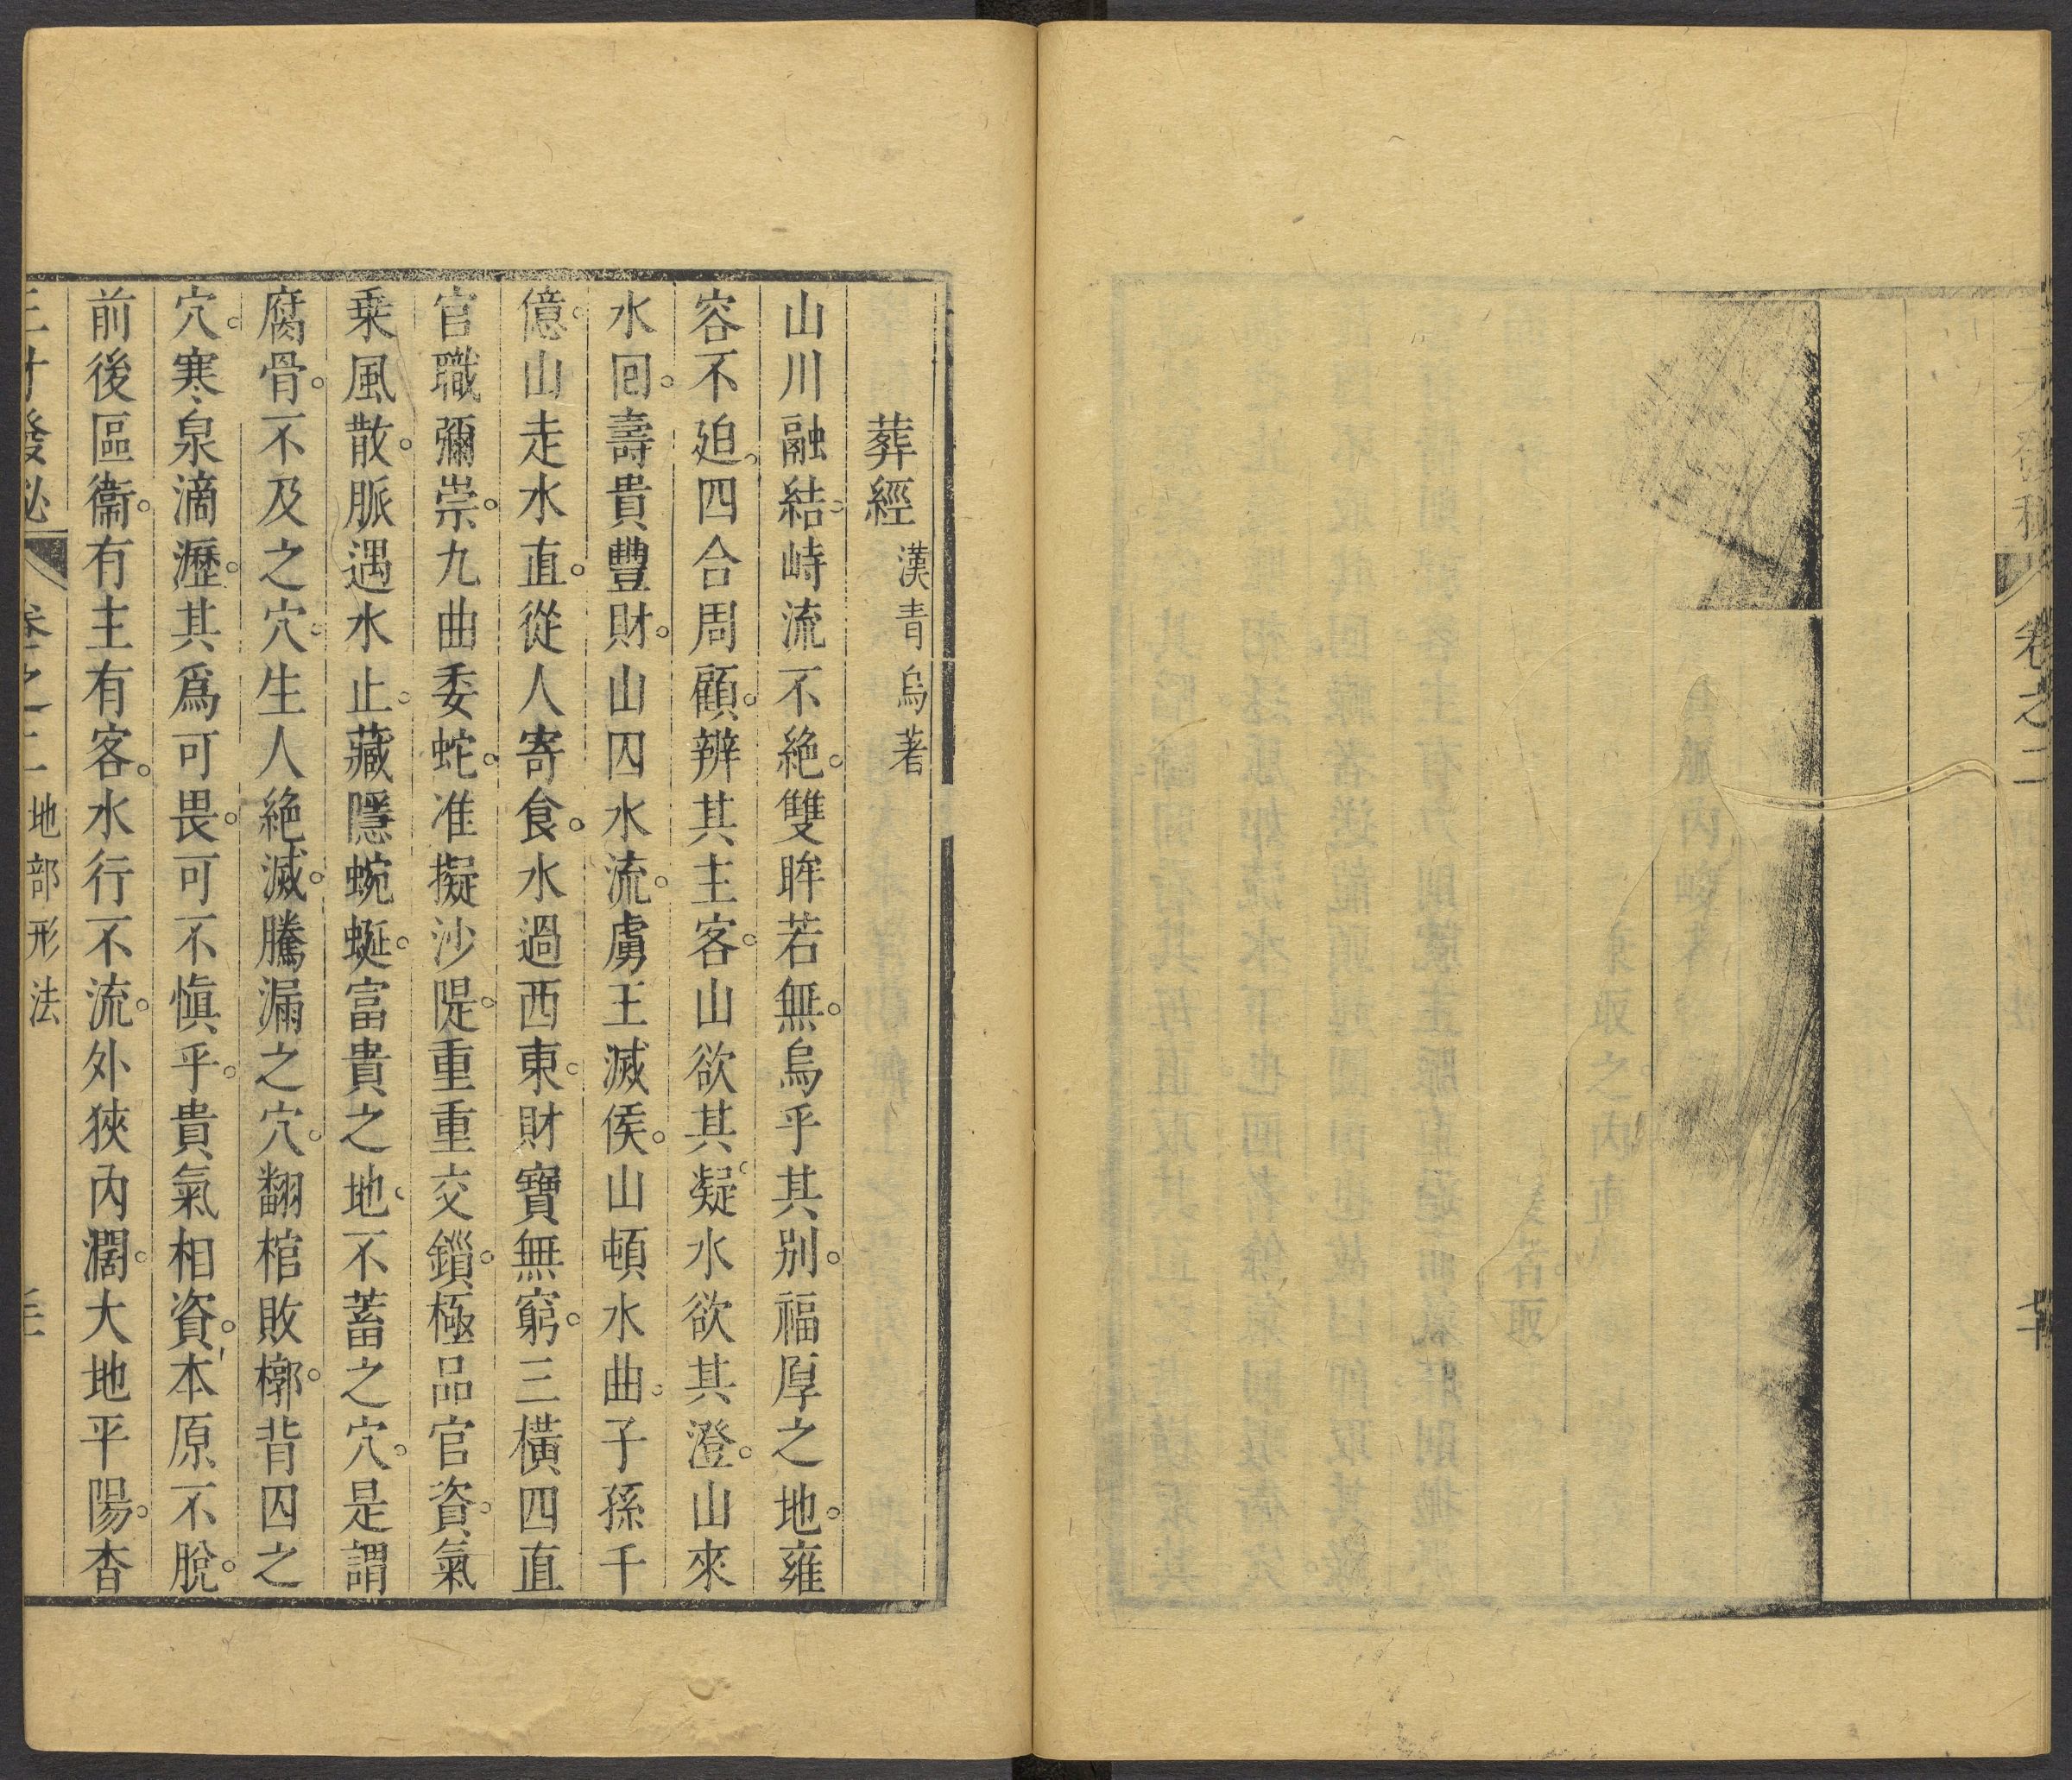 卷之二
葬經 漢青烏著
山川融結。峙流不絶。雙眸若無。烏乎其别。福厚之地。雍
容不迫。四合周顧。辨其主客。山欲其凝。水欲其澄。山來
水回。壽貴豐財。山囚水流。虜王滅侯。山頓水曲。子孫千
億。山走水直。從人寄食。水過西東。財寶無窮。三橫四直
官職彌崇。九曲委蛇。准擬沙隄。重重交鎖。極品官資。氣
乗風散。脈遇水止。藏隱蜿蜒。富貴之地。不蓄之穴。是謂
腐骨。不及之穴。生人絶滅。騰漏之穴。翻棺敗槨。背囚之
穴。寒泉滴瀝。其爲可畏。可不慎乎。貴氣相資。本原不脫。
前後區衞。有主有客。水行不流。外狹內濶。大地平陽。杳
三才發秘 卷之二 地部形法